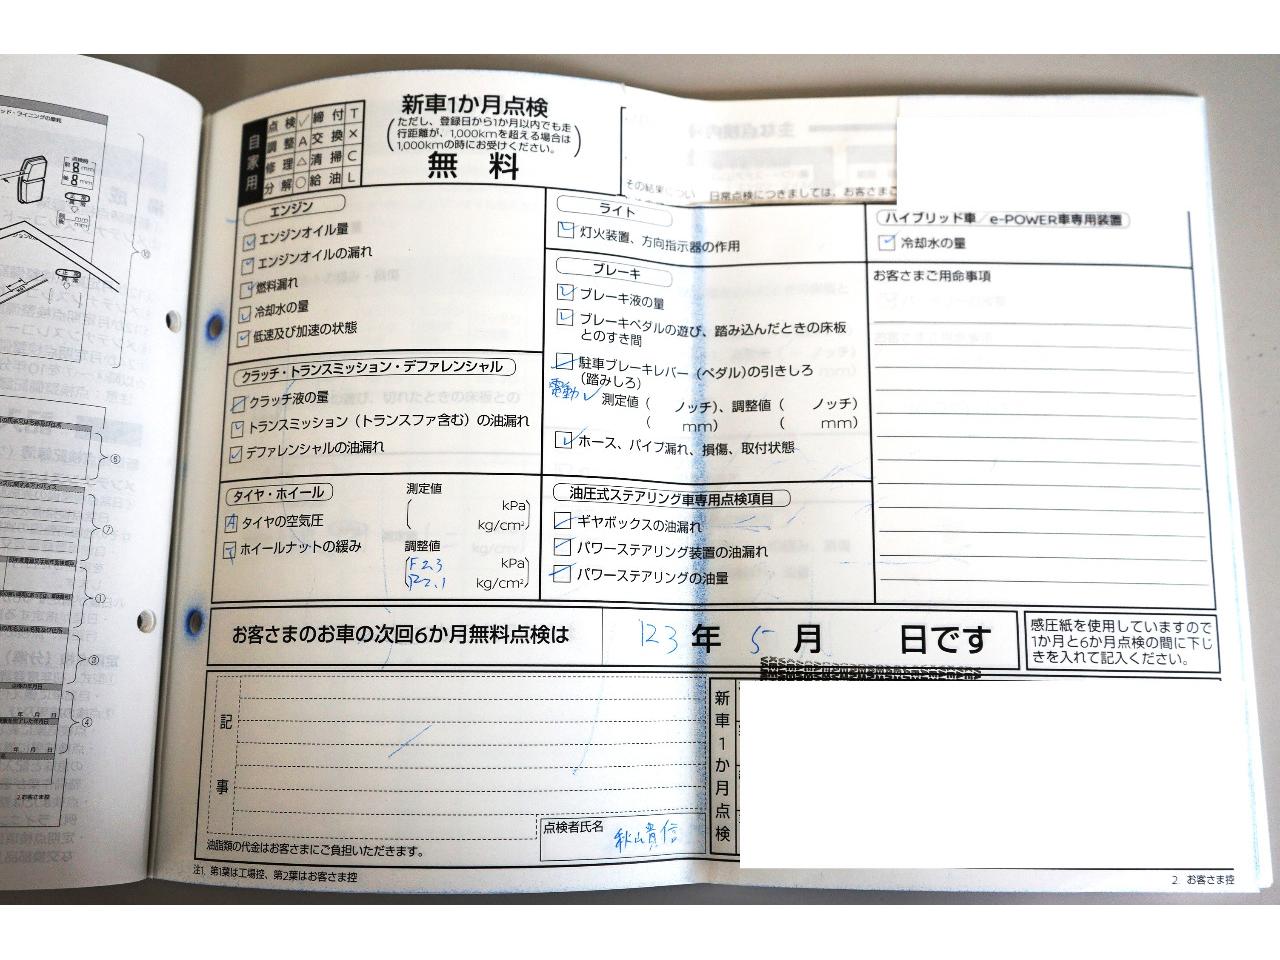 自家用
点検 ✓ 締付 T
調整 A 交換 ×
修理 △ 清掃 C
分解 ○ 給油 L
新車1か月点検
(ただし、登録日から1か月以内でも走
行距離が、1,000kmを超える場合は
1,000kmの時にお受けください。)
無 料
主な点検内
その結果につい 日常点検につきましては、お客さまご
エンジン
エンジンオイル量
エンジンオイルの漏れ
燃料漏れ
冷却水の量
低速及び加速の状態
クラッチ・トランスミッション・デファレンシャル
クラッチ液の量
トランスミッション(トランスファ含む)の油漏れ
デファレンシャルの油漏れ
タイヤ・ホイール
測定値
A タイヤの空気圧
( kPa
kg/cm²)
T ホイールナットの緩み
調整値
(F2.3 kPa
R2.1 kg/cm²)
ライト
灯火装置、方向指示器の作用
ブレーキ
ブレーキ液の量
ブレーキペダルの遊び、踏み込んだときの床板
とのすき間
駐車ブレーキレバー(ペダル)の引きしろ
(踏みしろ)
電動✓
測定値( ノッチ)、調整値( ノッチ)
( mm) ( mm)
ホース、パイプ漏れ、損傷、取付状態
油圧式ステアリング車専用点検項目
ギヤボックスの油漏れ
パワーステアリング装置の油漏れ
パワーステアリングの油量
ハイブリッド車/e-POWER車専用装置
冷却水の量
お客さまご用命事項
お客さまのお車の次回6か月無料点検は
123年 5月 日です
感圧紙を使用していますので
1か月と6か月点検の間に下じ
きを入れて記入ください。
記事
点検者氏名 秋山貴信
油脂類の代金はお客さまにご負担いただきます。
新車1か月点検
注1. 第1葉は工場控、第2葉はお客さま控
2 お客さま控